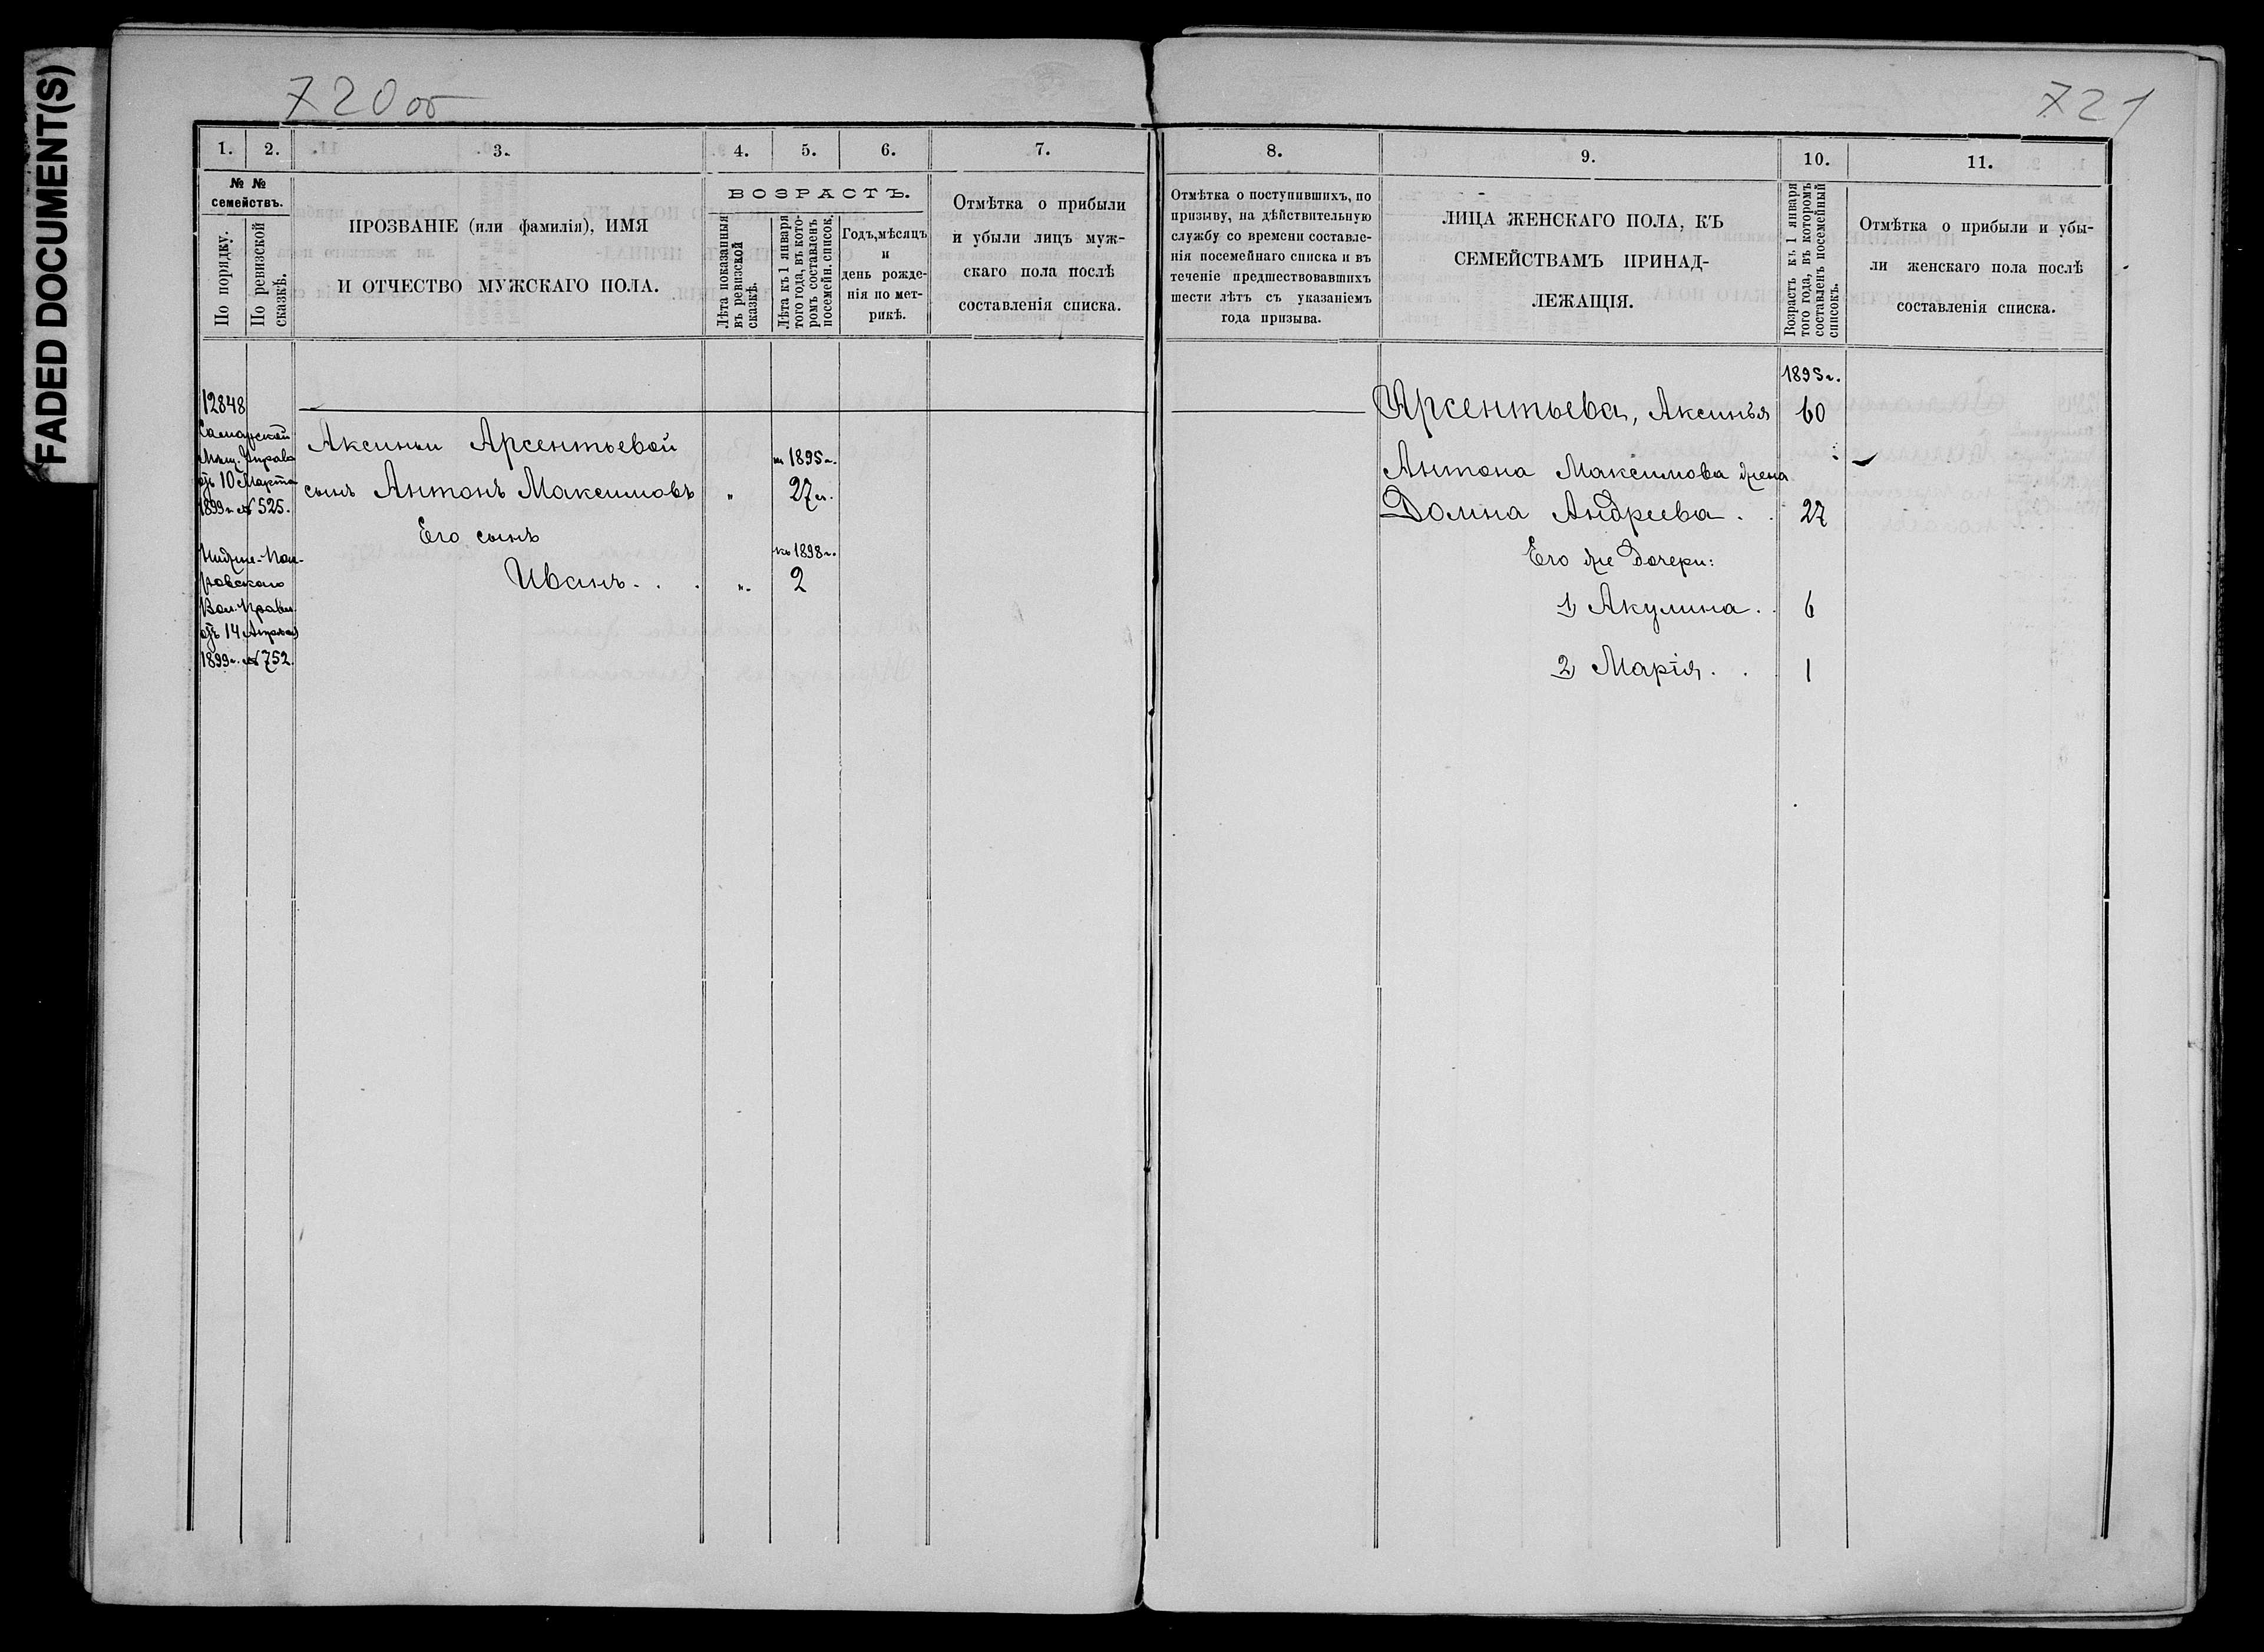 FADED DOCUMENT(S)
720об
1. 2. 3. 4. 5. 6. 7.
№ №
семействъ.
По порядку.
По ревизской
сказкѣ.
ПРОЗВАНІЕ (или фамилія), ИМЯ
И ОТЧЕСТВО МУЖСКАГО ПОЛА.
ВОЗРАСТЪ.
Лѣта показанныя
въ ревизской
сказкѣ.
Лѣта къ 1 января
того года, въ кото-
ромъ составленъ
посемейн. список.
Годъ, мѣсяцъ
и
день рожде-
нія по мет-
рикѣ.
Отмѣтка о прибыли
и убыли лицъ муж-
скаго пола послѣ
составленія списка.
12848
Самарской
Мѣщ. Управы
отъ 10 Марта
1899 г. № 525.
Покровскаго
Вол. Правл.
отъ 14 Апрѣля
1899 г. № 752.
Аксиньи Арсентьевой
1895 г.
сынъ Антонъ Максимовъ " 27 л.
Его сынъ
къ 1898 г.
Иванъ . . . " 2
721
8. 9. 10. 11.
Отмѣтка о поступившихъ, по
призыву, на дѣйствительную
службу со времени составле-
нія посемейнаго списка и въ
теченіе предшествовавшихъ
шести лѣтъ съ указаніемъ
года призыва.
ЛИЦА ЖЕНСКАГО ПОЛА, КЪ
СЕМЕЙСТВАМЪ ПРИНАД-
ЛЕЖАЩІЯ.
Возрастъ къ 1 января
того года, въ которомъ
составленъ посемейный
списокъ.
Отмѣтка о прибыли и убы-
ли женскаго пола послѣ
составленія списка.
1895 г.
Арсентьева, Аксинья 60
Антона Максимова жена
Домна Андреева . . 27
Его же дочери:
1) Акулина . . 6
2) Марія . . 1